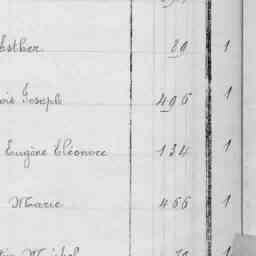 Esther 89 1
Joseph 496 1
Eugène Eléonore 134 1
Marie 466 1
Michel 1